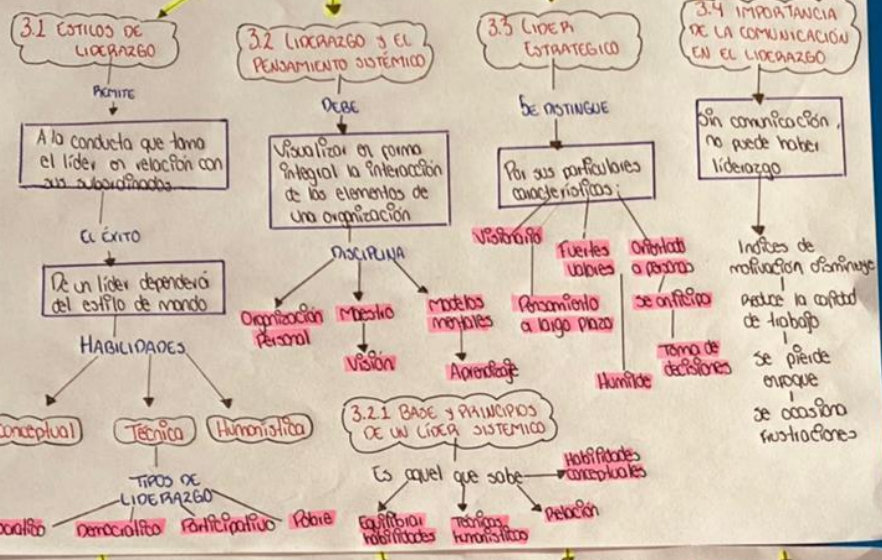 3.1 ESTILOS DE
LIDERAZGO
REMITE
A la conducta que toma
el líder en relación con
sus subordinados
EL ÉXITO
De un líder dependerá
del estilo de mando
HABILIDADES
Conceptual
Técnica
Humanistica
TIPOS DE
LIDERAZGO
Democratico
Participativo
Pobre
3.2 LIDERAZGO y EL
PENSAMIENTO SISTÉMICO
DEBE
Visualizar en forma
integral la interacción
de los elementos de
una organización
DISCIPLINA
Organización
Personal
Maestrio
Visión
Modelos
mentales
Aprendizaje
3.2.1 BASE y PRINCIPIOS
DE UN LÍDER SISTEMICO
Es aquel que sabe
Habilidades
conceptuales
Equilibrar
habilidades
Técnicas
humanisticas
Relación
3.3 LIDER
ESTRATEGICO
SE DISTINGUE
Por sus particulares
características:
Visionario
Pensamiento
a largo plazo
Fuertes
valores
Humilde
Orientado
a personas
se anticipa
Toma de
decisiones
3.4 IMPORTANCIA
DE LA COMUNICACIÓN
EN EL LIDERAZGO
Sin comunicación,
no puede haber
liderazgo
Indices de
motivación disminuye
Reduce la calidad
de trabajo
se pierde
enfoque
se ocasiona
frustraciones